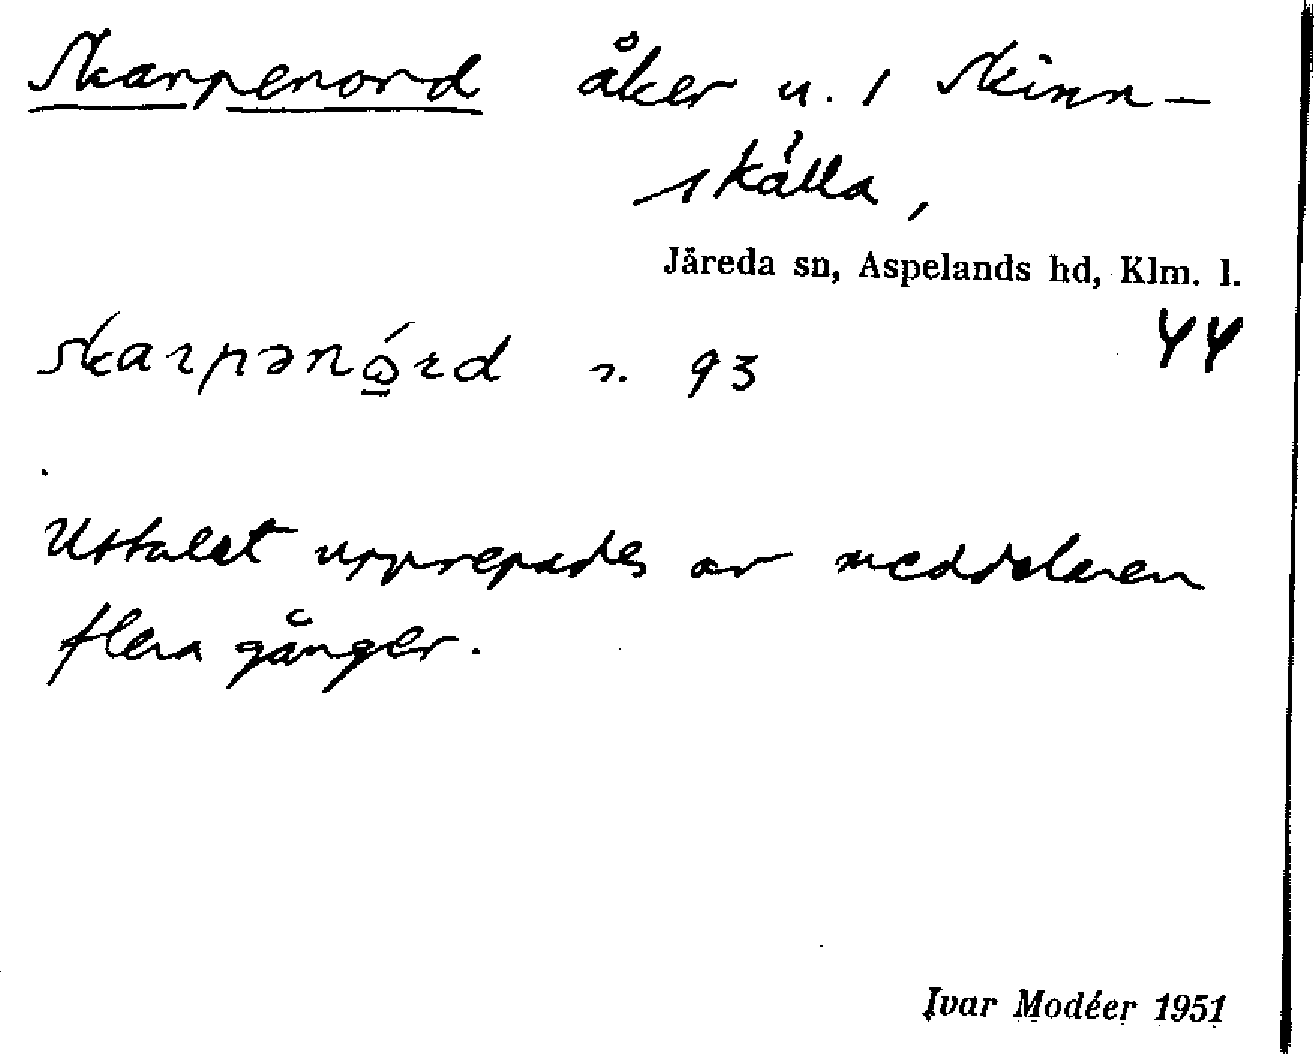 Skarpenord åker u. 1 Skinn-
skälla,
Järeda sn, Aspelands hd, Klm. l.
44
skarpənǫ́rd r. 93
Uttalet upprepades av meddelaren
flera gånger.
Ivar Modéer 1951